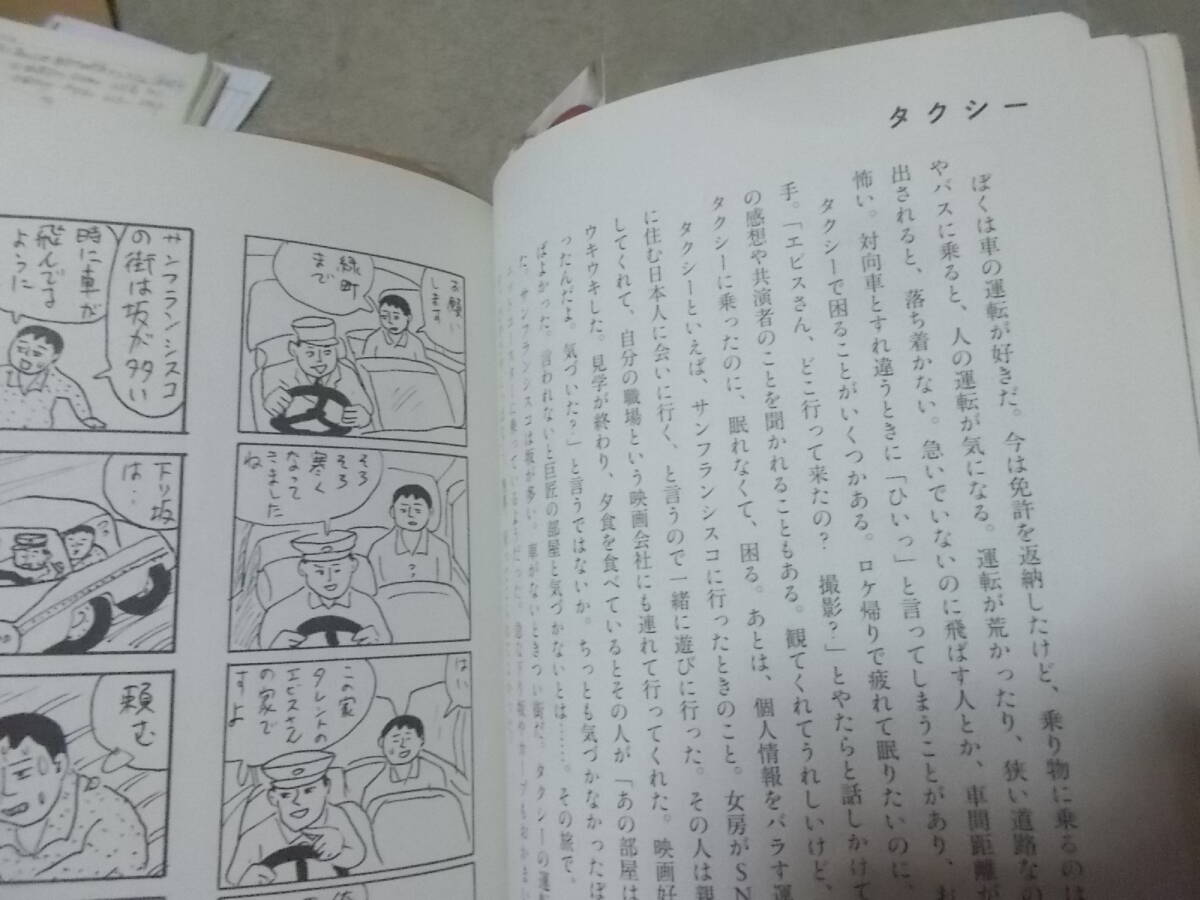 タクシー
ぼくは車の運転が好きだ。今は免許を返納したけど、乗り物に乗るのは
やバスに乗ると、人の運転が気になる。運転が荒かったり、狭い道路なの
出されると、落ち着かない。急いでいないのに飛ばす人とか、車間距離が
怖い。対向車とすれ違うときに「ひいっ」と言ってしまうことがあり、お
タクシーで困ることがいくつかある。ロケ帰りで疲れて眠りたいのに、
手。「エビスさん、どこ行って来たの? 撮影?」とやたらと話しかけて
の感想や共演者のことを聞かれることもある。観てくれてうれしいけど、
タクシーに乗ったのに、眠れなくて、困る。あとは、個人情報をバラす運
タクシーといえば、サンフランシスコに行ったときのこと。女房がSN
に住む日本人に会いに行く、と言うので一緒に遊びに行った。その人は親
してくれて、自分の職場という映画会社にも連れて行ってくれた。映画好
ウキウキした。見学が終わり、夕食を食べているとその人が「あの部屋は
ったんだよ。気づいた?」と言うではないか。ちっとも気づかなかったぼ
ばよかった。言われないと巨匠の部屋と気づかないとは……。その旅で
た。サンフランシスコは坂が多い。車がないときつい街だ。タクシーの運
お願い
します
緑町
まで
そろ
そろ
寒く
なって
きました
ね
?
はい
この家
タレントの
エビスさん
の家で
すよ
サンフランシスコ
の街は坂が多い
時に車が
飛んでる
ように
下り坂
は‥
頼む